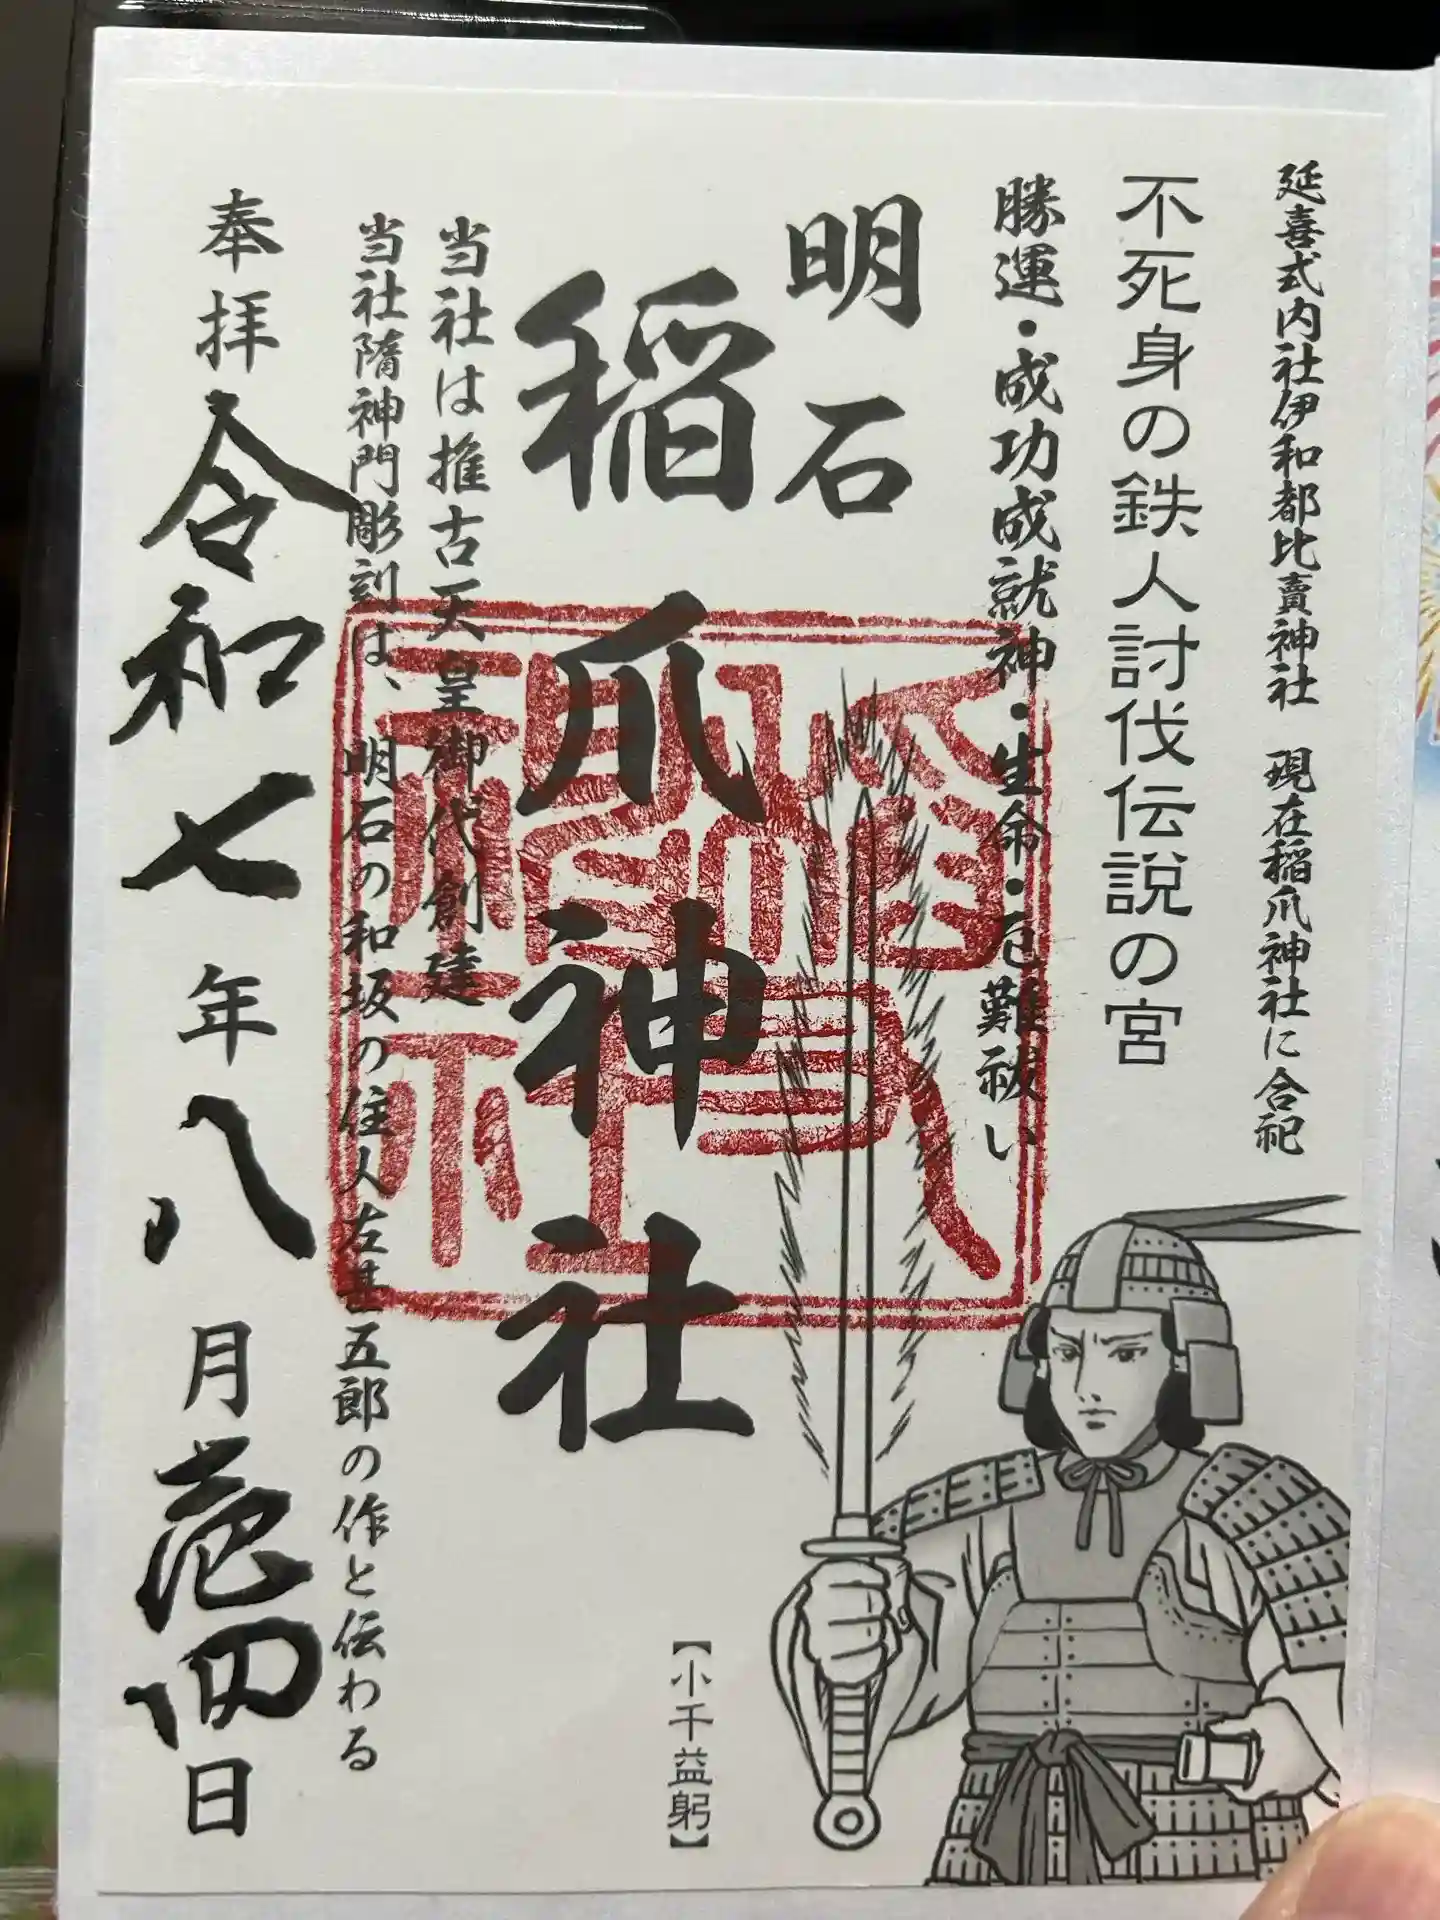 延喜式内社伊和都比賣神社 現在稲爪神社に合祀
不死身の鉄人討伐伝説の宮
勝運・成功成就神・生命・厄難祓い
明石
稲爪神社
当社は推古天皇御代創建
当社隋神門彫刻は、明石の和坂の住人左甚五郎の作と伝わる
奉拝 令和七年八月壱四日
【小千益躬】